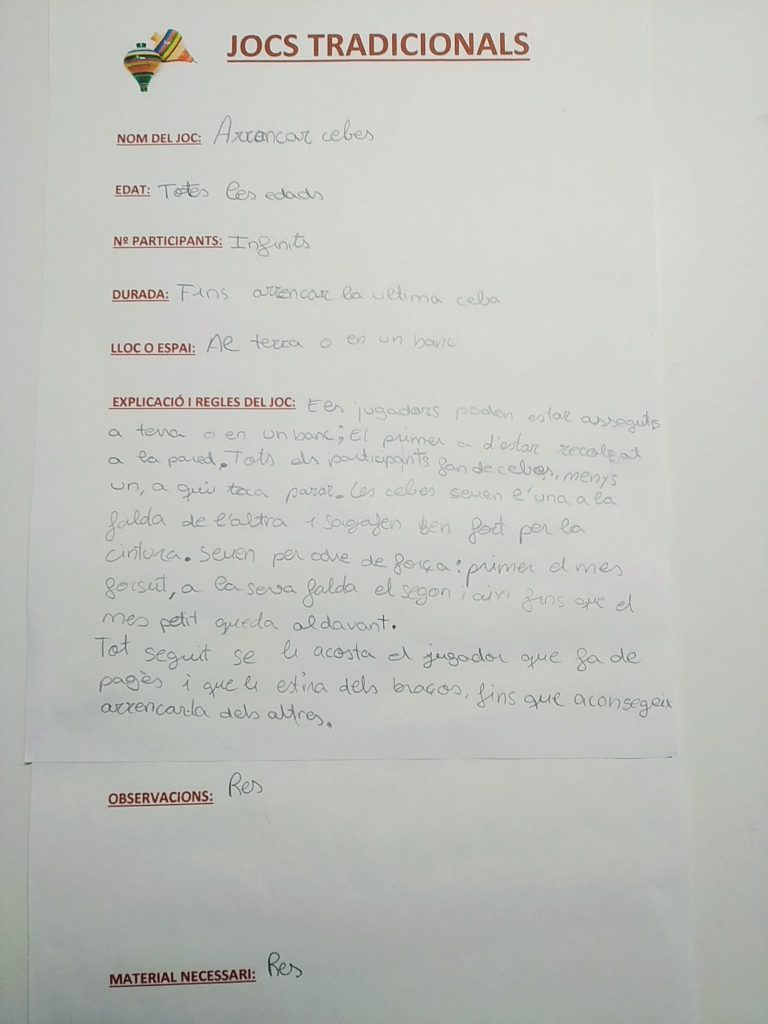 JOCS TRADICIONALS
NOM DEL JOC: Arrencar cebes
EDAT: Totes les edads
Nº PARTICIPANTS: Infinits
DURADA: Fins arrencar la ultima ceba
LLOC O ESPAI: Al terra o en un banc
EXPLICACIÓ I REGLES DEL JOC: Els jugadors poden estar asseguts
a terra o en un banc; El primer a d'estar recolzat
a la pared. Tots els participants fan de cebes, menys
un, a qui toca parar. Les cebes seuen l'una a la
falda de l'altra i s'agafen ben fort per la
cintura. Seuen per odre de força: primer el mes
forsut, a la seva falda el segon i aixi fins que el
mes petit queda al davant.
Tot seguit se li acosta el jugador que fa de
pagès i que li estira dels braços, fins que aconsegeix
arrencar-la dels altres.
OBSERVACIONS: Res
MATERIAL NECESSARI: Res